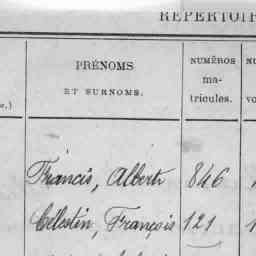 REPERTOIR
PRÉNOMS
ET SURNOMS.
NUMÉROS
ma-
tricules.
e.)
Francis, Albert 846
Célestin, François 121